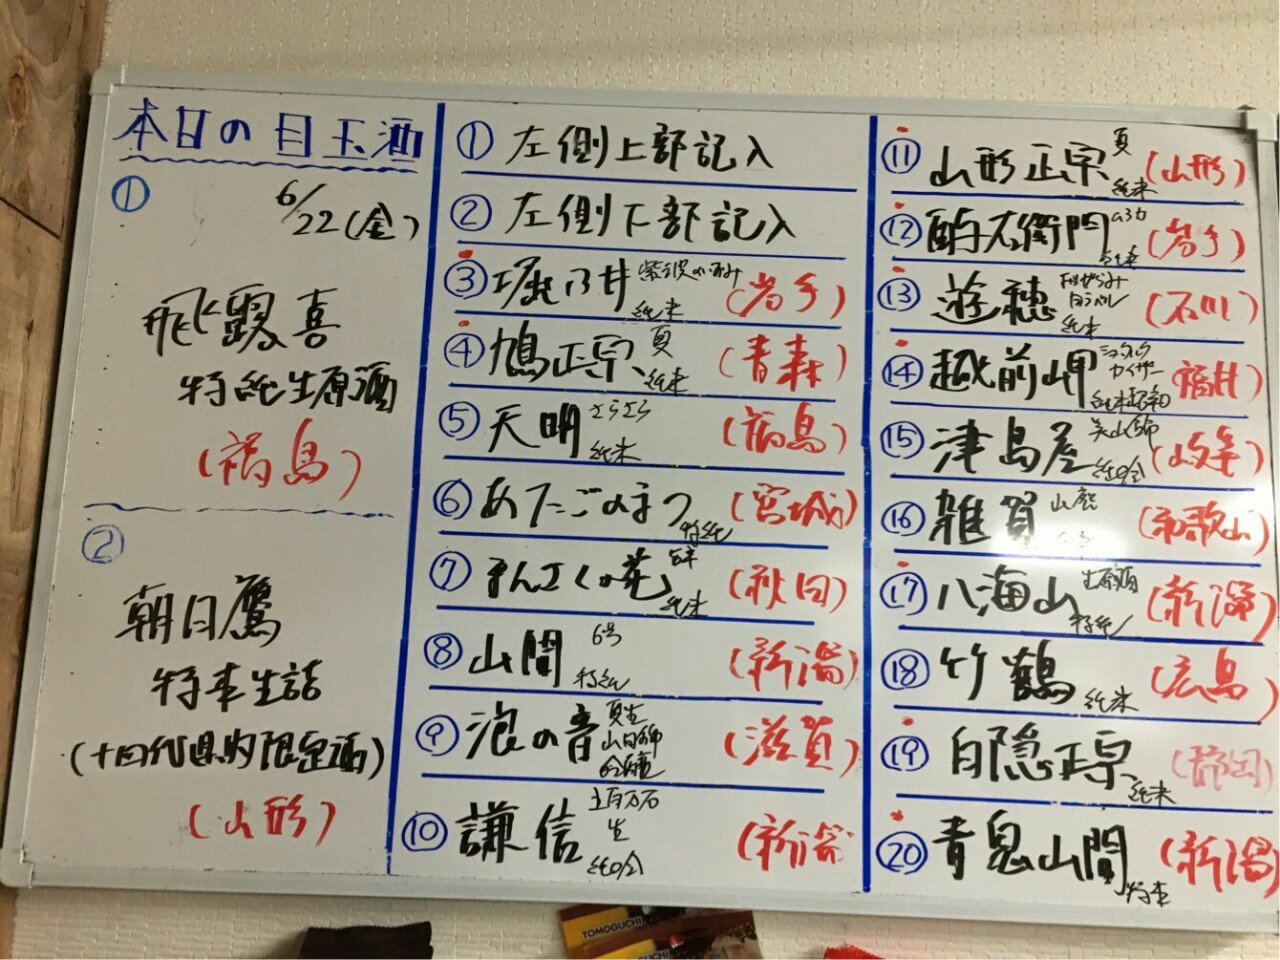 本日の目玉酒
①
6/22(金)
飛露喜
特純生原酒
(福島)
②
朝日鷹
特本生詰
(十四代県内限定酒)
(山形)
① 左側上部記入
② 左側下部記入
③ 堀の井 紫波のいぶみ 純米 (岩手)
④ 鳩正宗 夏 純米 (青森)
⑤ 天明 さらさら 純米 (福島)
⑥ あたごのまつ 特純 (宮城)
⑦ まんさくの花 純米 (秋田)
⑧ 山間 6号 特純 (新潟)
⑨ 浪の音 夏生 山田錦 (滋賀)
⑩ 謙信 五百万石 生 純吟 (新潟)
⑪ 山形正宗 夏 純米 (山形)
⑫ 酉与右衛門 純米 (岩手)
⑬ 遊穂 純米 (石川)
⑭ 越前岬 カイザー (福井)
⑮ 津島屋 美山錦 純吟 (岐阜)
⑯ 雑賀 山廃 (和歌山)
⑰ 八海山 生原酒 特純 (新潟)
⑱ 竹鶴 純米 (広島)
⑲ 白隠正宗 純米 (静岡)
⑳ 青息山間 特本 (新潟)
TOMOGUCHI